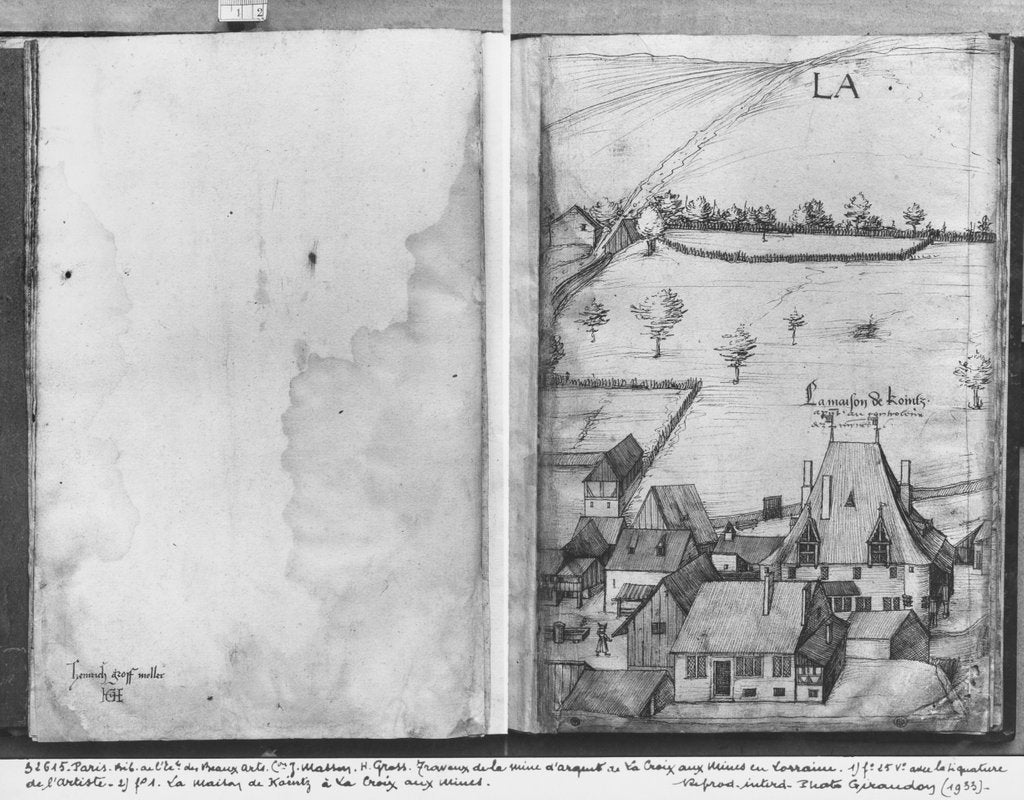 1 2
LA
La maison de Kointz.
Heinrich groff moller
HG
32615. Paris. Bib. de l'Ec.^e des Beaux Arts. (^on J. Masson. H. Gross. Travaux de la mine d'argent de La Croix aux Mines en Lorraine. 1) f° 25 v° avec la signature
de l'Artiste - 2) f° 1. La Maison de Kointz à La Croix aux Mines.
Reprod. interd. Photo Giraudon (1933)-